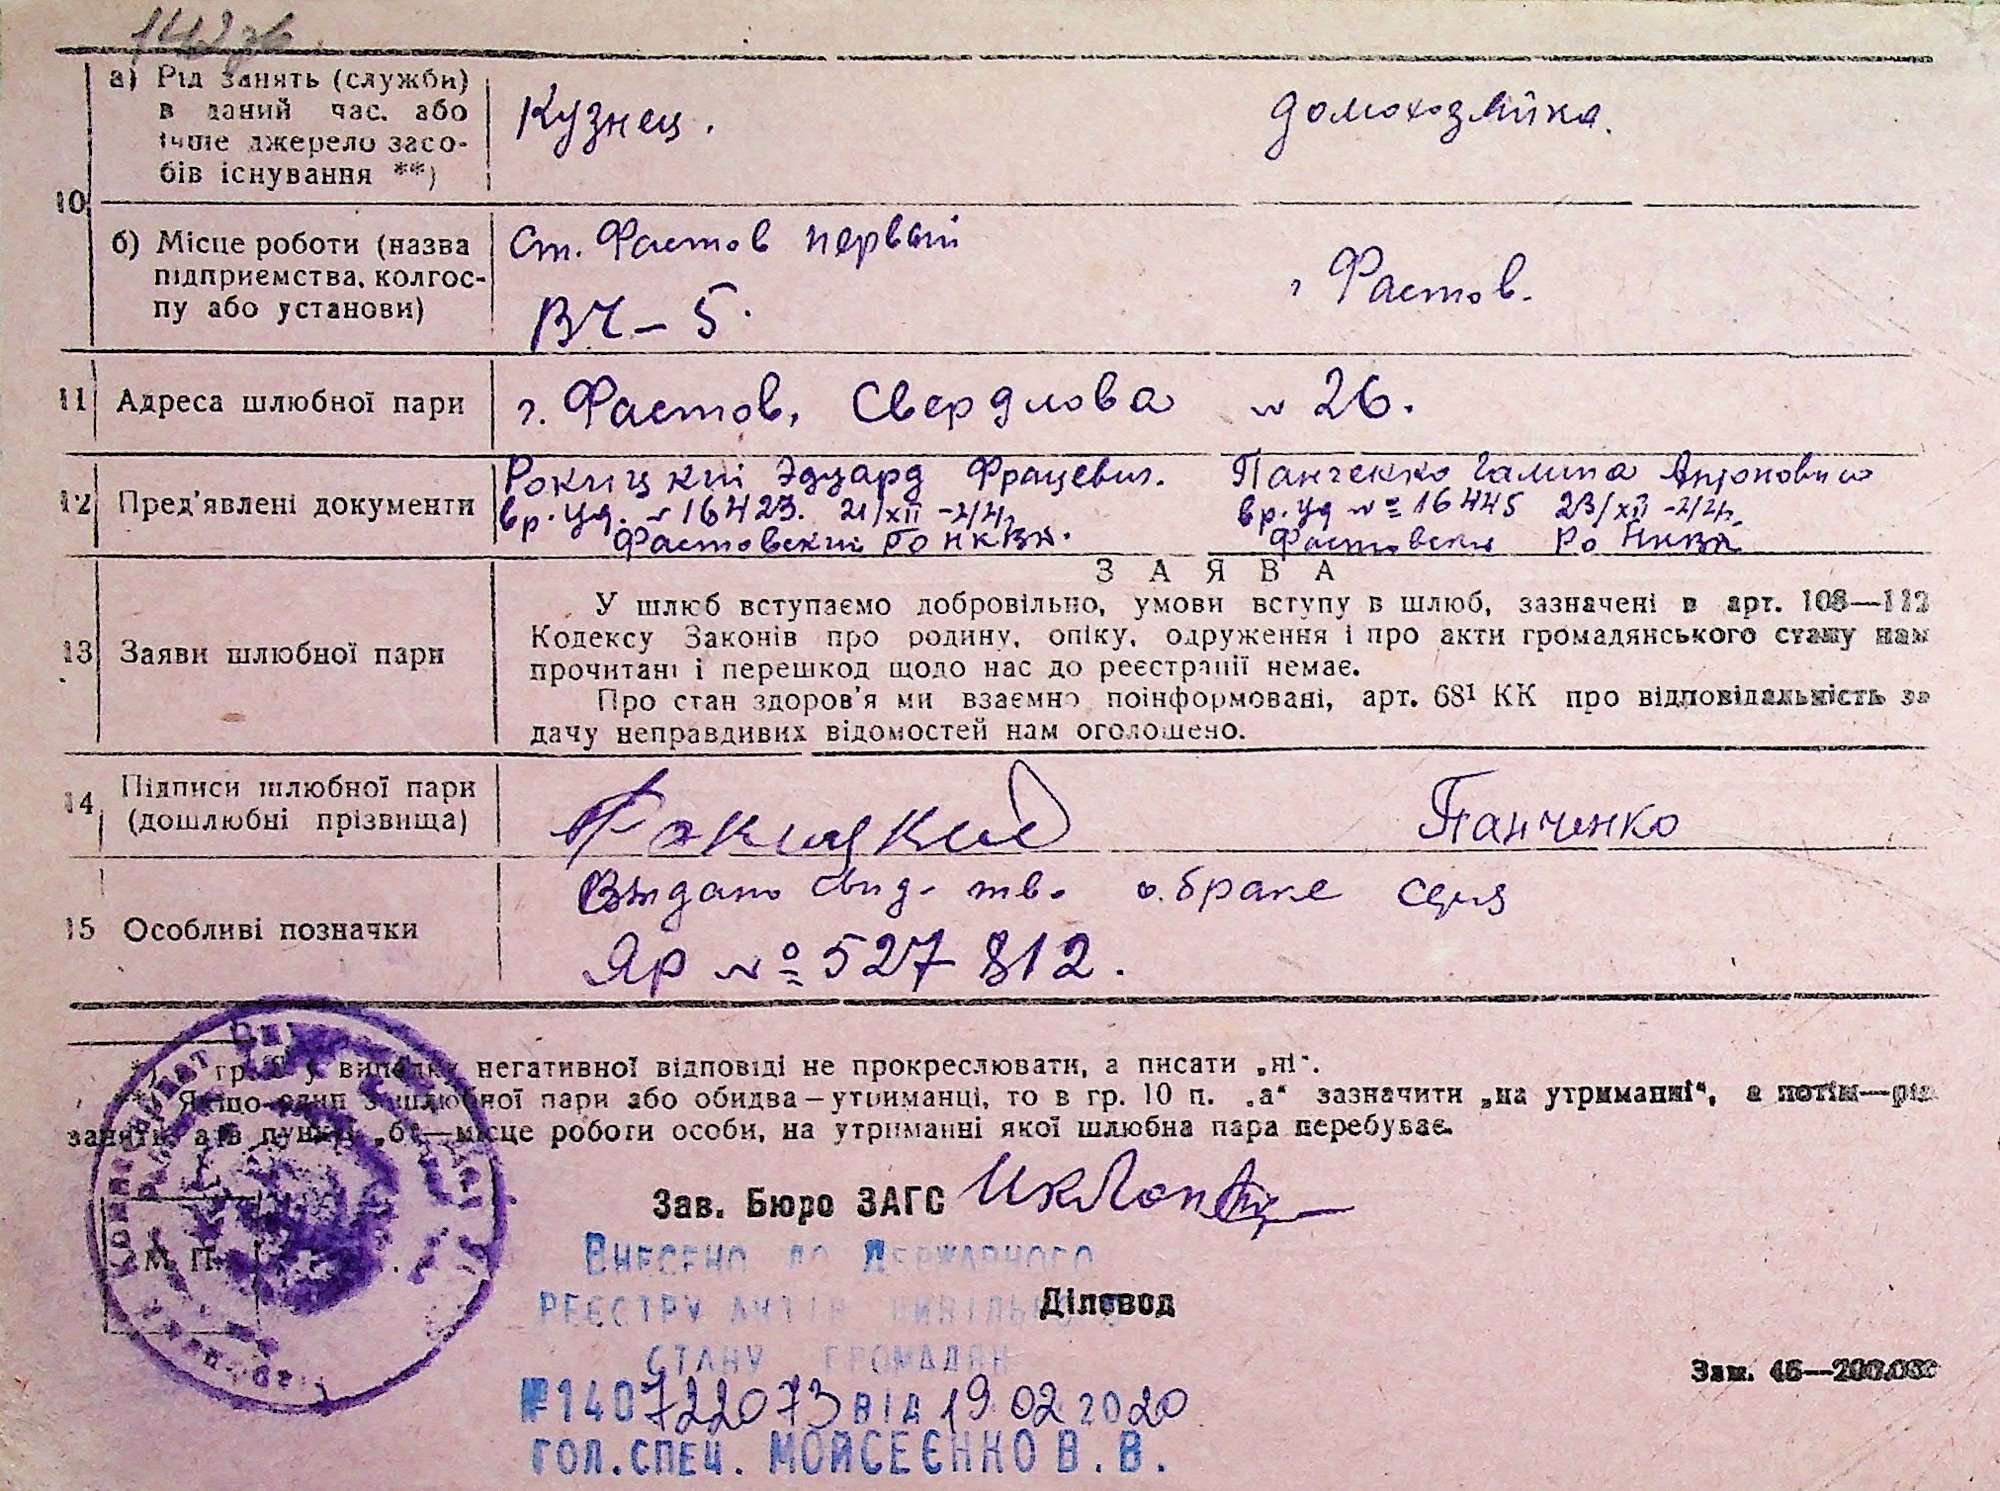 142 зв
а) Рід занять (служби)
в даний час. або
інше джерело засо-
бів існування **)
Кузнец.
домохозяйка.
10
б) Місце роботи (назва
підприємства, колгос-
пу або установи)
ст. Фастов первый
ВЧ – 5.
г Фастов.
11 Адреса шлюбної пари
г. Фастов, Свердлова № 26.
12 Пред'явлені документи
Рокицкий Эдуард Фрацевич.
вр. уд. № 16423. 21/XII -44г.
Фастовский Ро НКВД.
Панченко Галина Антоновна
вр. уд № 16445 23/XII -44г.
Фастовски Ро НКВД
13 Заяви шлюбної пари
ЗАЯВА
У шлюб вступаємо добровільно, умови вступу в шлюб, зазначені в арт. 108—112
Кодексу Законів про родину, опіку, одруження і про акти громадянського стану нам
прочитані і перешкод щодо нас до реєстрації немає.
Про стан здоров'я ми взаємно поінформовані, арт. 68¹ КК про відповідальність за
дачу неправдивих відомостей нам оголошено.
14 Підписи шлюбної пари
(дошлюбні прізвища)
Рокицкий
Панченко
15 Особливі позначки
Выдано свид-тво о браке серия
Яр № 527812.
гр. у випадку негативної відповіді не прокреслювати, а писати „ні".
**) Якщо один з шлюбної пари або обидва—утриманці, то в гр. 10 п. „а" зазначити „на утриманні", а потім—рід
занять, а в пункті „б"—місце роботи особи, на утриманні якої шлюбна пара перебуває.
Зав. Бюро ЗАГС
М. П.
Внесено до Державного
Діловод
реєстру актів цивільного
стану громадян
Зам. 46—200.000
№140722073 від 19.02 2020
гол. спец. Мойсеєнко В. В.